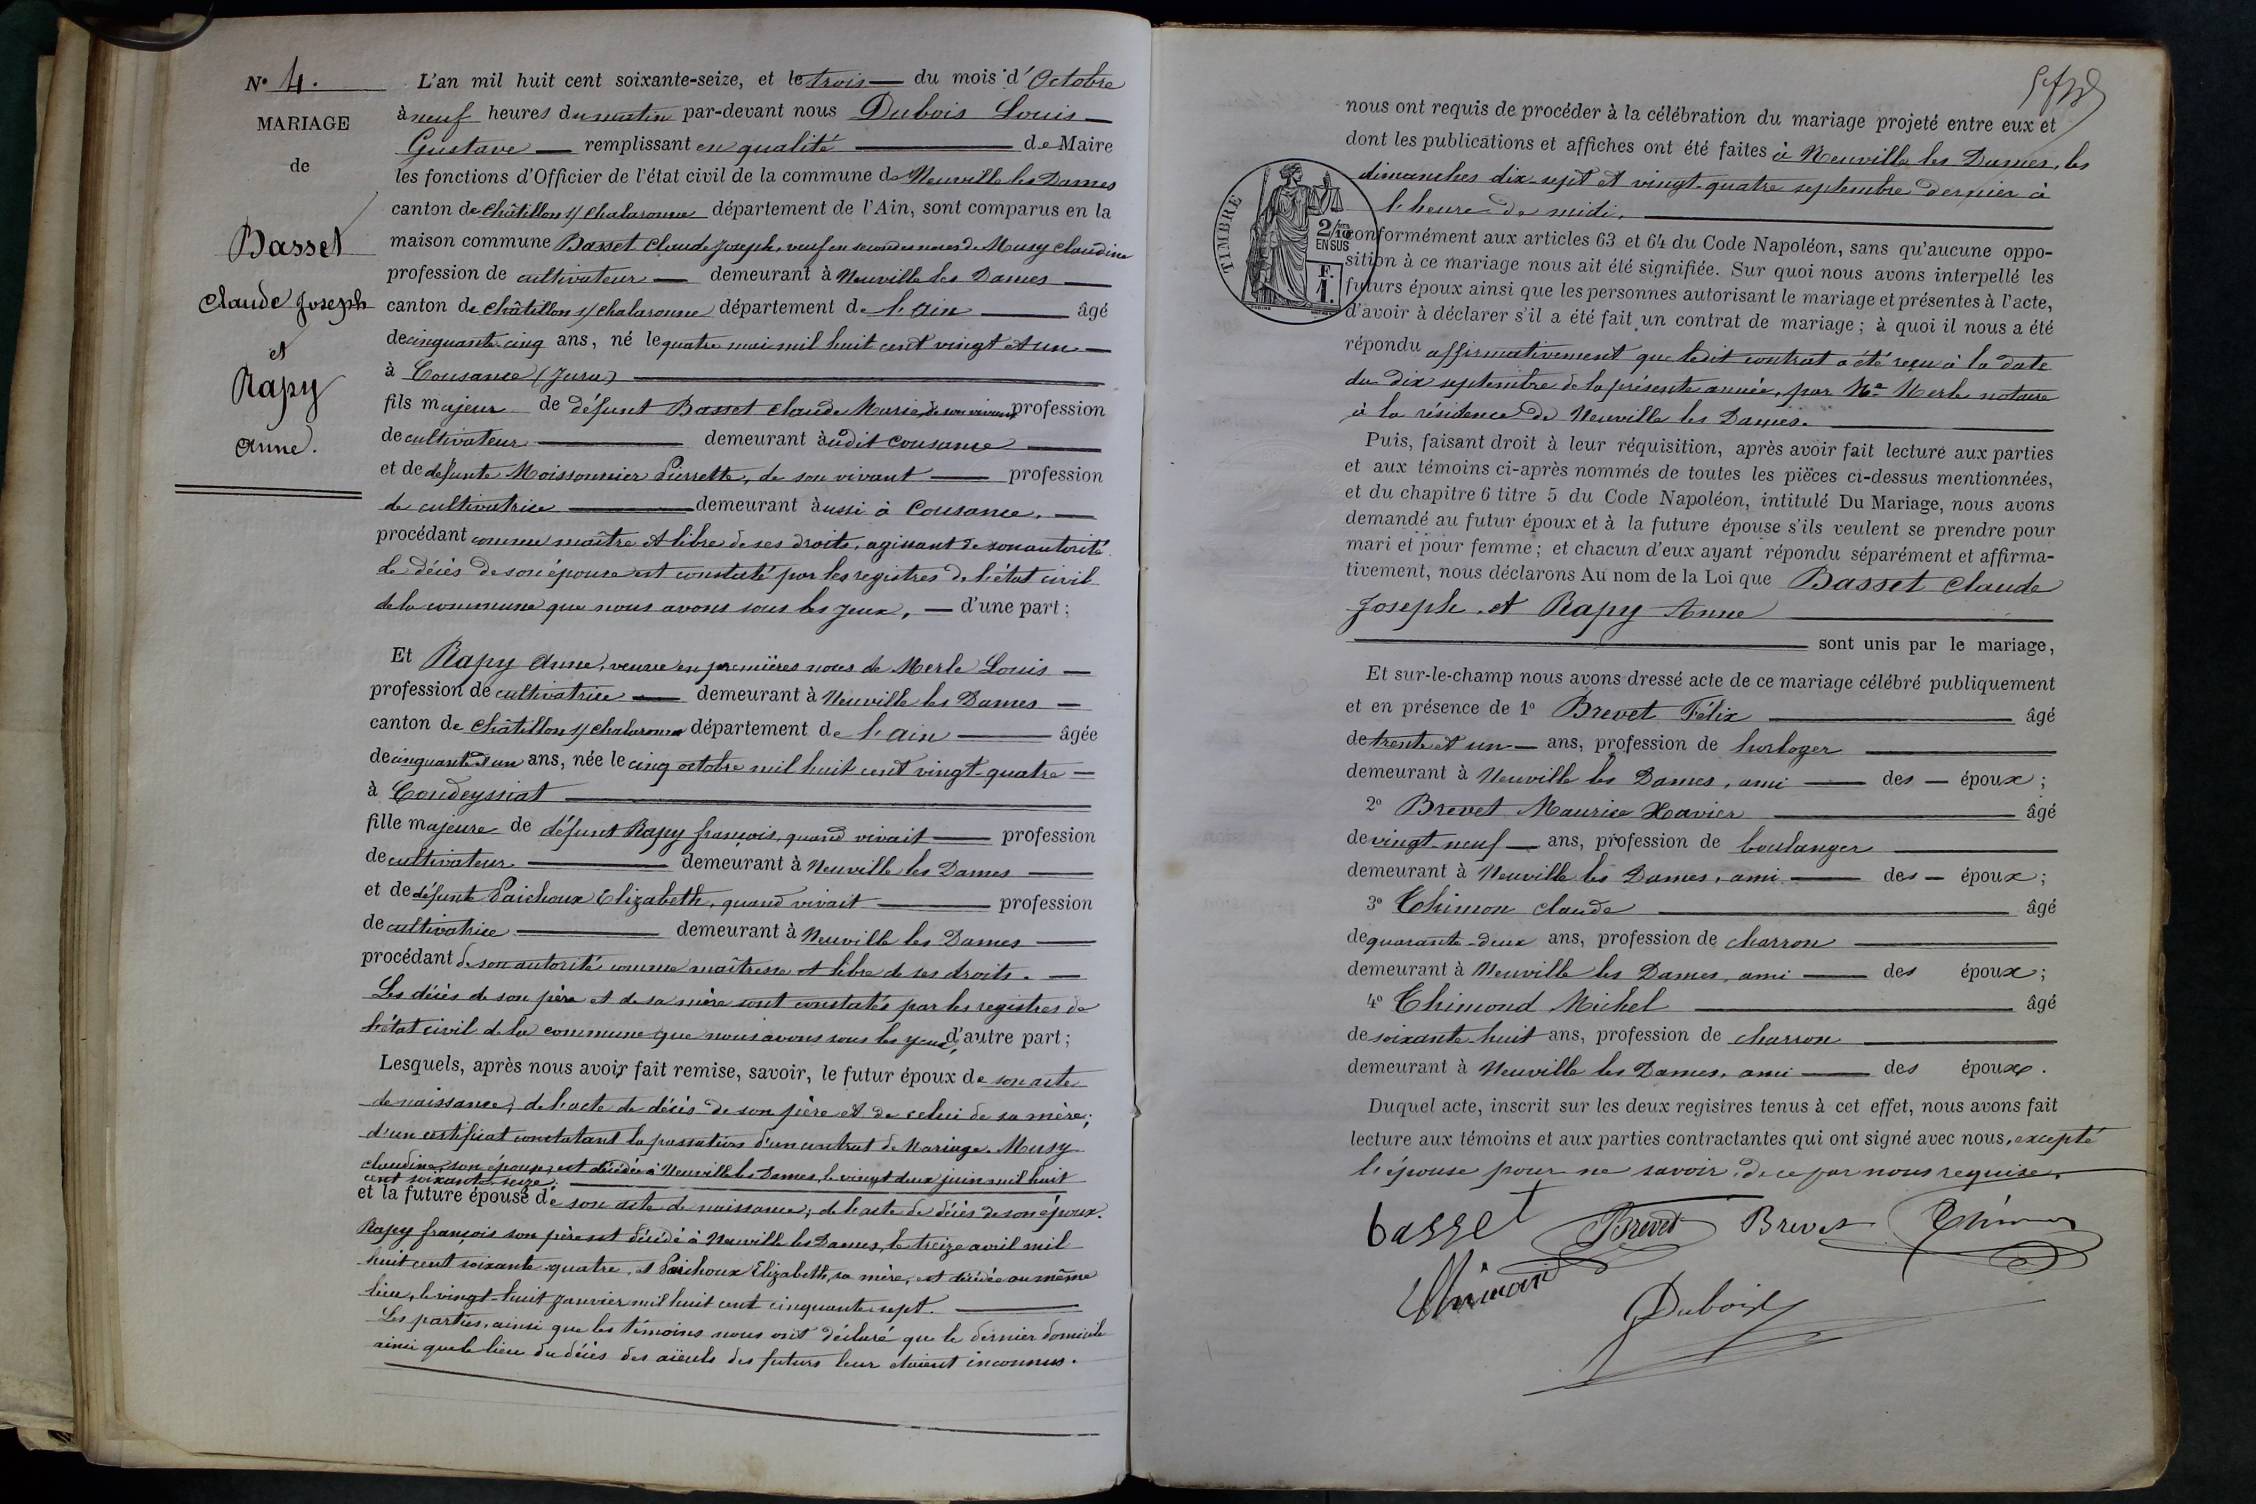 N° 4.
MARIAGE
de
Basset
Claude Joseph
et
Rapy
Anne.
L'an mil huit cent soixante-seize, et le trois du mois d'Octobre
à neuf heures du matin par-devant nous Dubois Louis
Gustave remplissant en qualité de Maire
les fonctions d'Officier de l'état civil de la commune de Neuville les Dames
canton de Châtillon s/ Chalaronne département de l'Ain, sont comparus en la
maison commune Basset Claude Joseph, veuf en secondes noces de Musy Claudine
profession de cultivateur demeurant à Neuville les Dames
canton de Châtillon s/ Chalaronne département de l'Ain âgé
de cinquante-cinq ans, né le quatre mai mil huit cent vingt et un
à Cousance (Jura)
fils majeur de défunt Basset Claude Marie, de son vivant profession
de cultivateur demeurant audit Cousance
et de défunte Moissonnier Pierrette, de son vivant profession
de cultivatrice demeurant aussi à Cousance.
procédant comme maître et libre de ses droits, agissant de son autorité
le décès de son épouse est constaté par les registres de l'état civil
de la commune que nous avons sous les yeux, d'une part ;
Et Rapy Anne, veuve en premières noces de Merle Louis
profession de cultivatrice demeurant à Neuville les Dames
canton de Châtillon s/ Chalaronne département de l'Ain âgée
de cinquante et un ans, née le cinq octobre mil huit cent vingt-quatre
à Condeyssiat
fille majeure de défunt Rapy françois, quand vivait profession
de cultivateur demeurant à Neuville les Dames
et de défunte Paichoux Elizabeth, quand vivait profession
de cultivatrice demeurant à Neuville les Dames
procédant de son autorité comme maîtresse et libre de ses droits.
Les décès de son père et de sa mère sont constatés par les registres de
l'état civil de la commune que nous avons sous les yeux, d'autre part ;
Lesquels, après nous avoir fait remise, savoir, le futur époux de son acte
de naissance, de l'acte de décès de son père et de celui de sa mère ;
d'un certificat constatant la passation d'un contrat de Mariage. Musy
Claudine, son épouse, est décédée à Neuville les Dames, le vingt deux juin mil huit
cent soixante-seize.
et la future épouse de son acte de naissance ; de l'acte de décès de son époux.
Rapy françois son père est décédé à Neuville les Dames, le treize avril mil
huit cent soixante quatre, et Paichoux Elizabeth, sa mère, est décédée au même
lieu, le vingt-huit Janvier mil huit cent cinquante sept.
Les parties, ainsi que les témoins nous ont déclaré que le dernier domicile
ainsi que le lieu du décès des aïeuls des futurs leur étaient inconnus.
nous ont requis de procéder à la célébration du mariage projeté entre eux et
dont les publications et affiches ont été faites à Neuville les Dames, les
dimanches dix-sept et vingt-quatre septembre dernier à
l'heure de midi.
TIMBRE
2/10
EN SUS
F.
1.
conformément aux articles 63 et 64 du Code Napoléon, sans qu'aucune oppo-
sition à ce mariage nous ait été signifiée. Sur quoi nous avons interpellé les
futurs époux ainsi que les personnes autorisant le mariage et présentes à l'acte,
d'avoir à déclarer s'il a été fait un contrat de mariage ; à quoi il nous a été
répondu affirmativement que ledit contrat a été reçu à la date
du dix septembre de la présente année, par Me Merle notaire
à la résidence de Neuville les Dames.
Puis, faisant droit à leur réquisition, après avoir fait lecture aux parties
et aux témoins ci-après nommés de toutes les pièces ci-dessus mentionnées,
et du chapitre 6 titre 5 du Code Napoléon, intitulé Du Mariage, nous avons
demandé au futur époux et à la future épouse s'ils veulent se prendre pour
mari et pour femme ; et chacun d'eux ayant répondu séparément et affirma-
tivement, nous déclarons Au nom de la Loi que Basset Claude
Joseph et Rapy Anne
sont unis par le mariage,
Et sur-le-champ nous avons dressé acte de ce mariage célébré publiquement
et en présence de 1° Brevet Félix âgé
de trente et un ans, profession de horloger
demeurant à Neuville les Dames, ami des époux ;
2° Brevet Maurice Xavier âgé
de vingt-neuf ans, profession de boulanger
demeurant à Neuville les Dames, ami des époux ;
3° Thimon Claude âgé
de quarante-deux ans, profession de charron
demeurant à Neuville les Dames, ami des époux ;
4° Thimond Michel âgé
de soixante-huit ans, profession de charron
demeurant à Neuville les Dames, ami des époux.
Duquel acte, inscrit sur les deux registres tenus à cet effet, nous avons fait
lecture aux témoins et aux parties contractantes qui ont signé avec nous, excepté
l'épouse pour ne savoir, de ce par nous requise.
basset Brevet Brevet Thimon
Thimond
Dubois